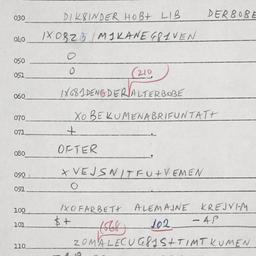 030 DIK8INDER HOB+ LIB DERBOBE
040 IX0825 MIKANE G81VEN
050 O
051 O (210)
060 IXG81DENGDER ALTERBOBE
070 XOBEKUMENABRIFUNTAT+
071 +
080 OFTER
090 XVEJSNITFU+VEMEN
091 O
100 IXOFARBET+ ALEMAJNE KREJVIM
101 $+ (568) 102 -AP
110 ZOMALECUG8JS+TIMT KUMEN